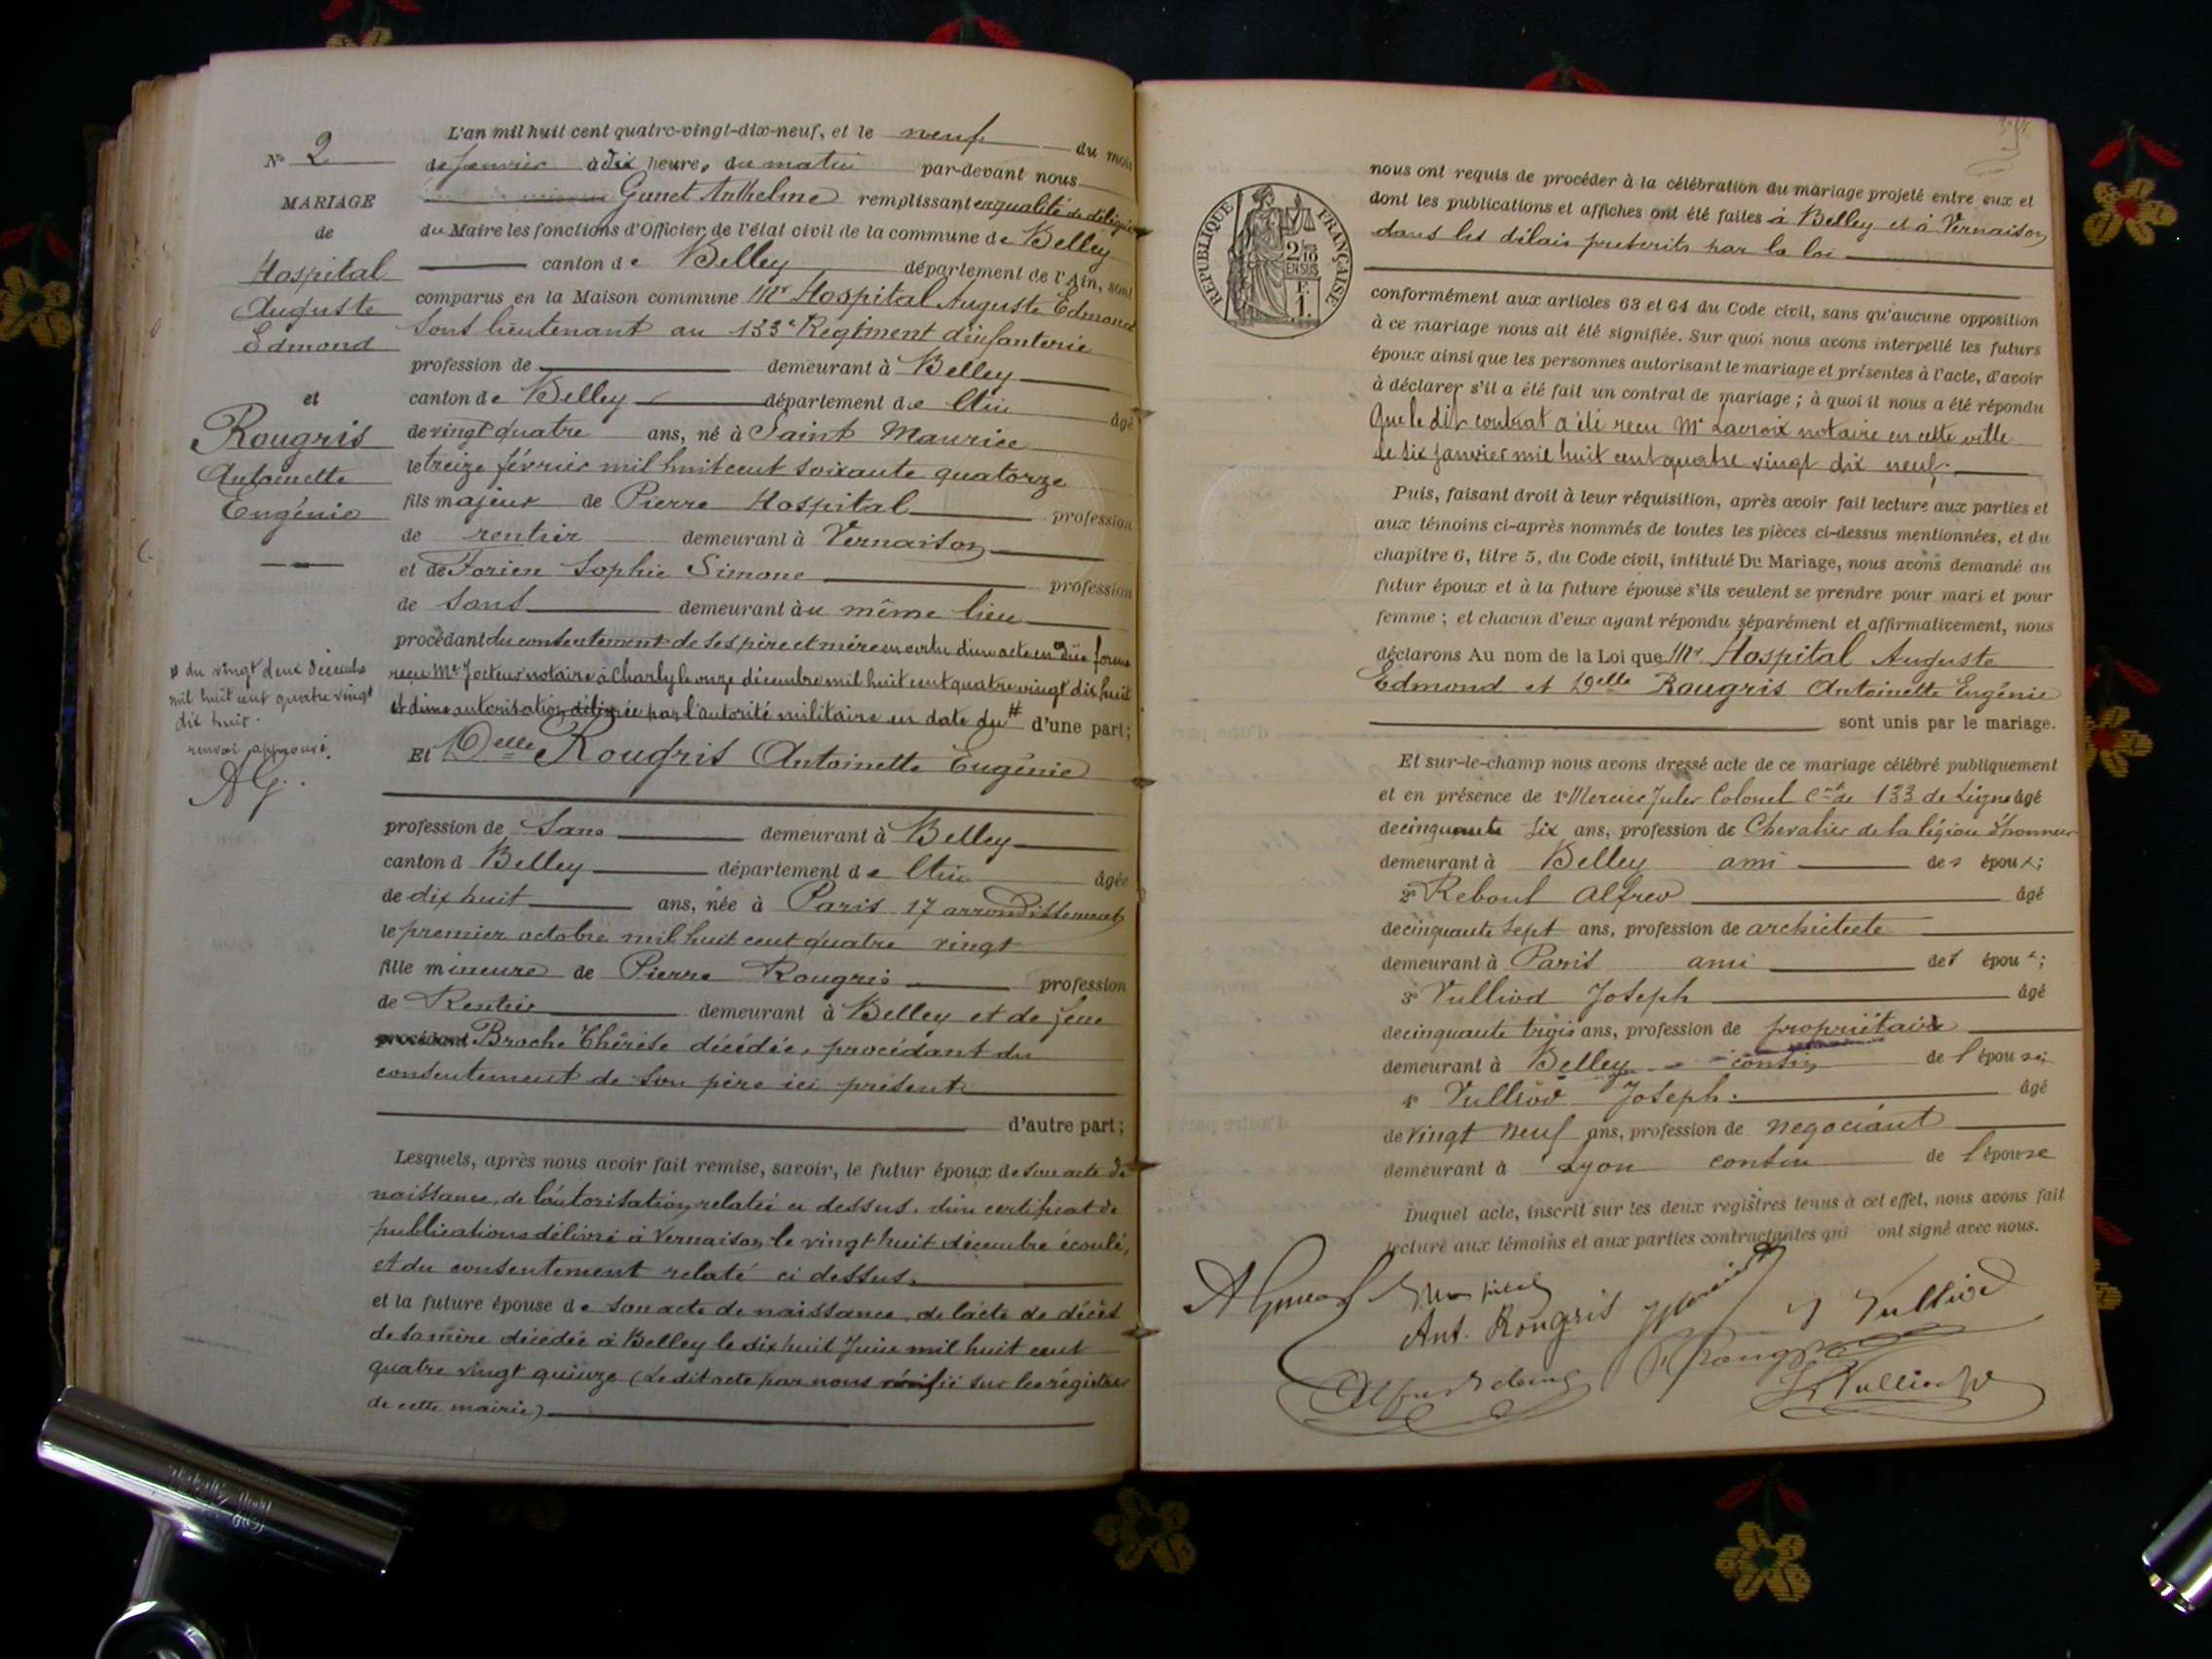 L'an mil huit cent quatre-vingt-dix-neuf, et le neuf du mois
N° 2
de Janvier à dix heures du matin par-devant nous
Gunet Anthelme remplissant en qualité de délégué
MARIAGE
de
du Maire les fonctions d'Officier de l'état civil de la commune de Belley
Hospital
Auguste
Edmond
et
Rougris
Antoinette
Eugénie
canton de Belley département de l'Ain, sont
comparus en la Maison commune Mr Hospital Auguste Edmond
Sous lieutenant au 133e Régiment d'infanterie
profession de demeurant à Belley
canton de Belley département de l'Ain âgé
de vingt quatre ans, né à Saint Maurice
le treize février mil huit cent soixante quatorze
fils majeur de Pierre Hospital profession
de rentier demeurant à Vernaison
et de Forien Sophie Simone profession
de sans demeurant au même lieu
procédant du consentement de ses père et mère en vertu d'un acte en dûe forme
reçu Me notaire à Charly le onze décembre mil huit cent quatre vingt dix huit
et d'une autorisation délivrée par l'autorité militaire en date du # d'une part;
# du vingt deux décembre
mil huit cent quatre vingt
dix huit.
renvoi approuvé.
AG.
Et Delle Rougris Antoinette Eugénie
profession de Sans demeurant à Belley
canton d Belley département de l'Ain âgée
de dix huit ans, née à Paris 17 arrondissement
le premier octobre mil huit cent quatre vingt
fille mineure de Pierre Rougris profession
de Rentier demeurant à Belley et de feue
procédant Broche Thérèse décédée, procédant du
consentement de son père ici présent
d'autre part;
Lesquels, après nous avoir fait remise, savoir, le futur époux de son acte de
naissance, de l'autorisation relatée ci dessus, d'un certificat de
publications délivré à Vernaison le vingt huit décembre écoulé,
et du consentement relaté ci dessus.
et la future épouse de son acte de naissance, de l'acte de décès
de sa mère décédée à Belley le dix huit Juin mil huit cent
quatre vingt quinze (Le dit acte par nous vérifié sur les régistres
de cette mairie)
RÉPUBLIQUE FRANÇAISE
2/10
EN SUS
F.
1.
nous ont requis de procéder à la célébration du mariage projeté entre eux et
dont les publications et affiches ont été faites à Belley et à Vernaison
dans les délais prescrits par la loi
conformément aux articles 63 et 64 du Code civil, sans qu'aucune opposition
à ce mariage nous ait été signifiée. Sur quoi nous avons interpellé les futurs
époux ainsi que les personnes autorisant le mariage et présentes à l'acte, d'avoir
à déclarer s'il a été fait un contrat de mariage; à quoi il nous a été répondu
Que le dit contrat a été reçu Me Lacroix notaire en cette ville
le six Janvier mil huit cent quatre vingt dix neuf.
Puis, faisant droit à leur réquisition, après avoir fait lecture aux parties et
aux témoins ci-après nommés de toutes les pièces ci-dessus mentionnées, et du
chapitre 6, titre 5, du Code civil, intitulé Du Mariage, nous avons demandé au
futur époux et à la future épouse s'ils veulent se prendre pour mari et pour
femme; et chacun d'eux ayant répondu séparément et affirmativement, nous
déclarons Au nom de la Loi que Mr Hospital Auguste
Edmond et Delle Rougris Antoinette Eugénie
sont unis par le mariage.
Et sur-le-champ nous avons dressé acte de ce mariage célébré publiquement
et en présence de 1° Mercier Jules Colonel Ct de 133 de Ligne âgé
de cinquante six ans, profession de Chevalier de la légion d'honneur
demeurant à Belley ami des époux;
2° Reboul Alfred âgé
de cinquante sept ans, profession de architecte
demeurant à Paris ami des époux;
3° Vulliod Joseph âgé
de cinquante trois ans, profession de propriétaire
demeurant à Belley cousin de l'épouse;
4° Vulliod Joseph. âgé
de vingt neuf ans, profession de négociant
demeurant à Lyon cousin de l'épouse
Duquel acte, inscrit sur les deux registres tenus à cet effet, nous avons fait
lecture aux témoins et aux parties contractantes qui ont signé avec nous.
Ant. Rougris
J Vulliod